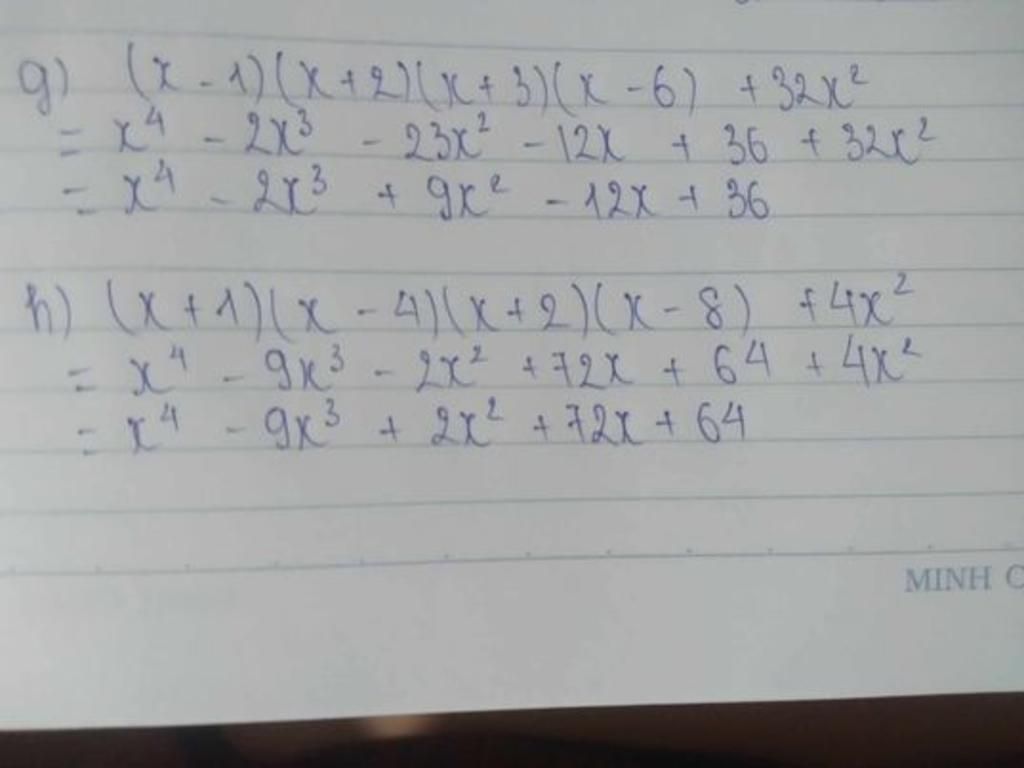 g) (x - 1)(x + 2)(x + 3)(x - 6) + 32x²
= x⁴ - 2x³ - 23x² - 12x + 36 + 32x²
= x⁴ - 2x³ + 9x² - 12x + 36
h) (x + 1)(x - 4)(x + 2)(x - 8) + 4x²
= x⁴ - 9x³ - 2x² + 72x + 64 + 4x²
= x⁴ - 9x³ + 2x² + 72x + 64
MINH C